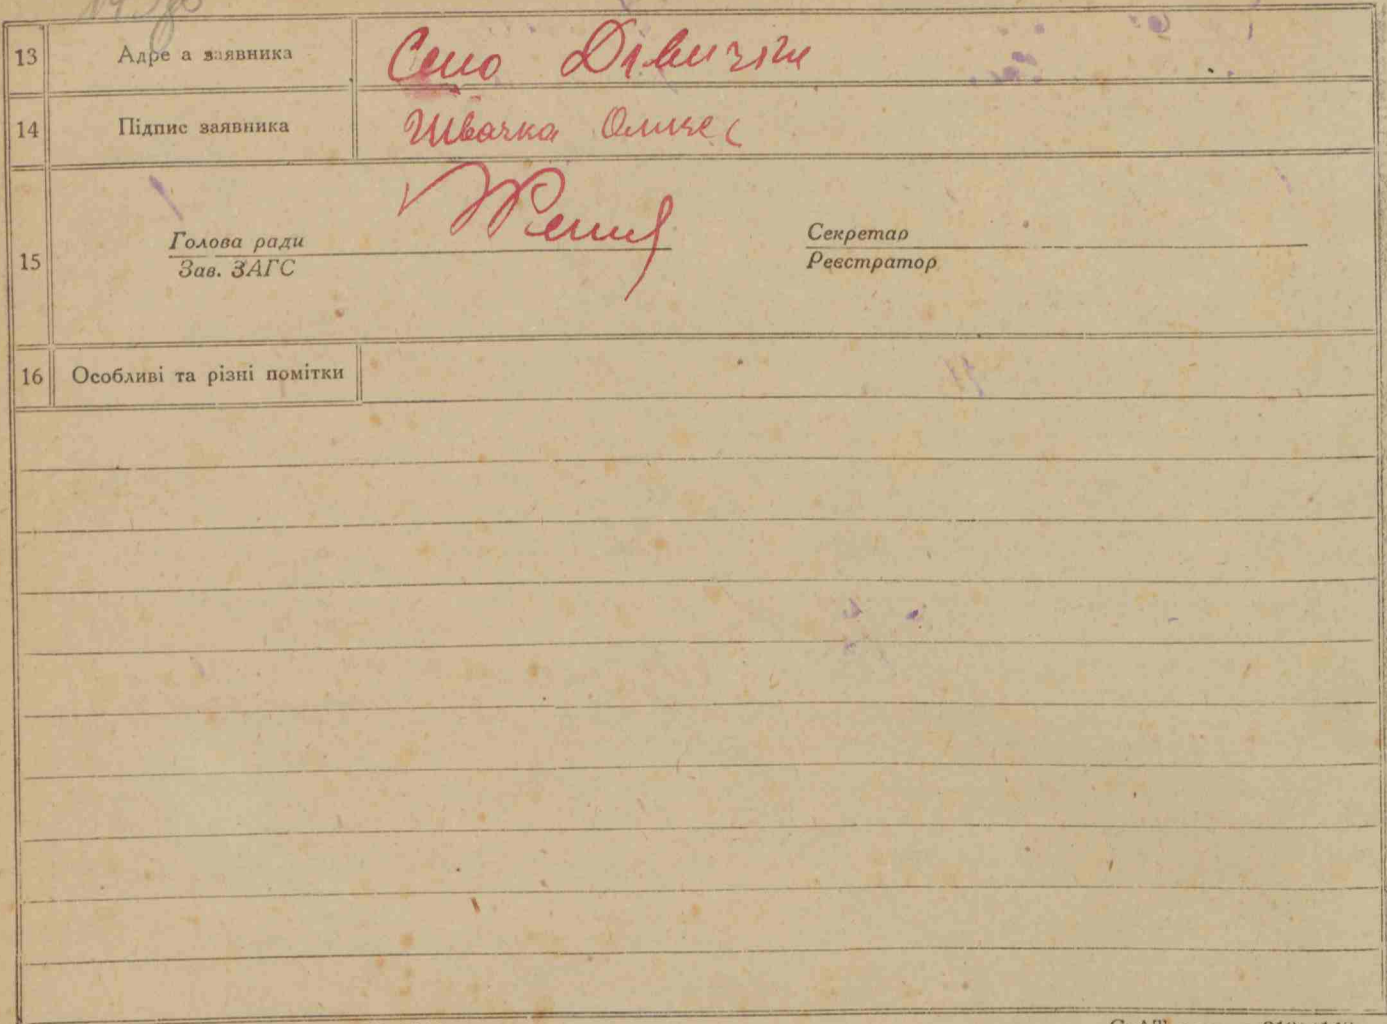 13 Адре а заявника Село Дівички
14 Підпис заявника Швачка Олекс
15 Голова ради
Зав. ЗАГС
Секретар
Реєстратор
16 Особливі та різні помітки